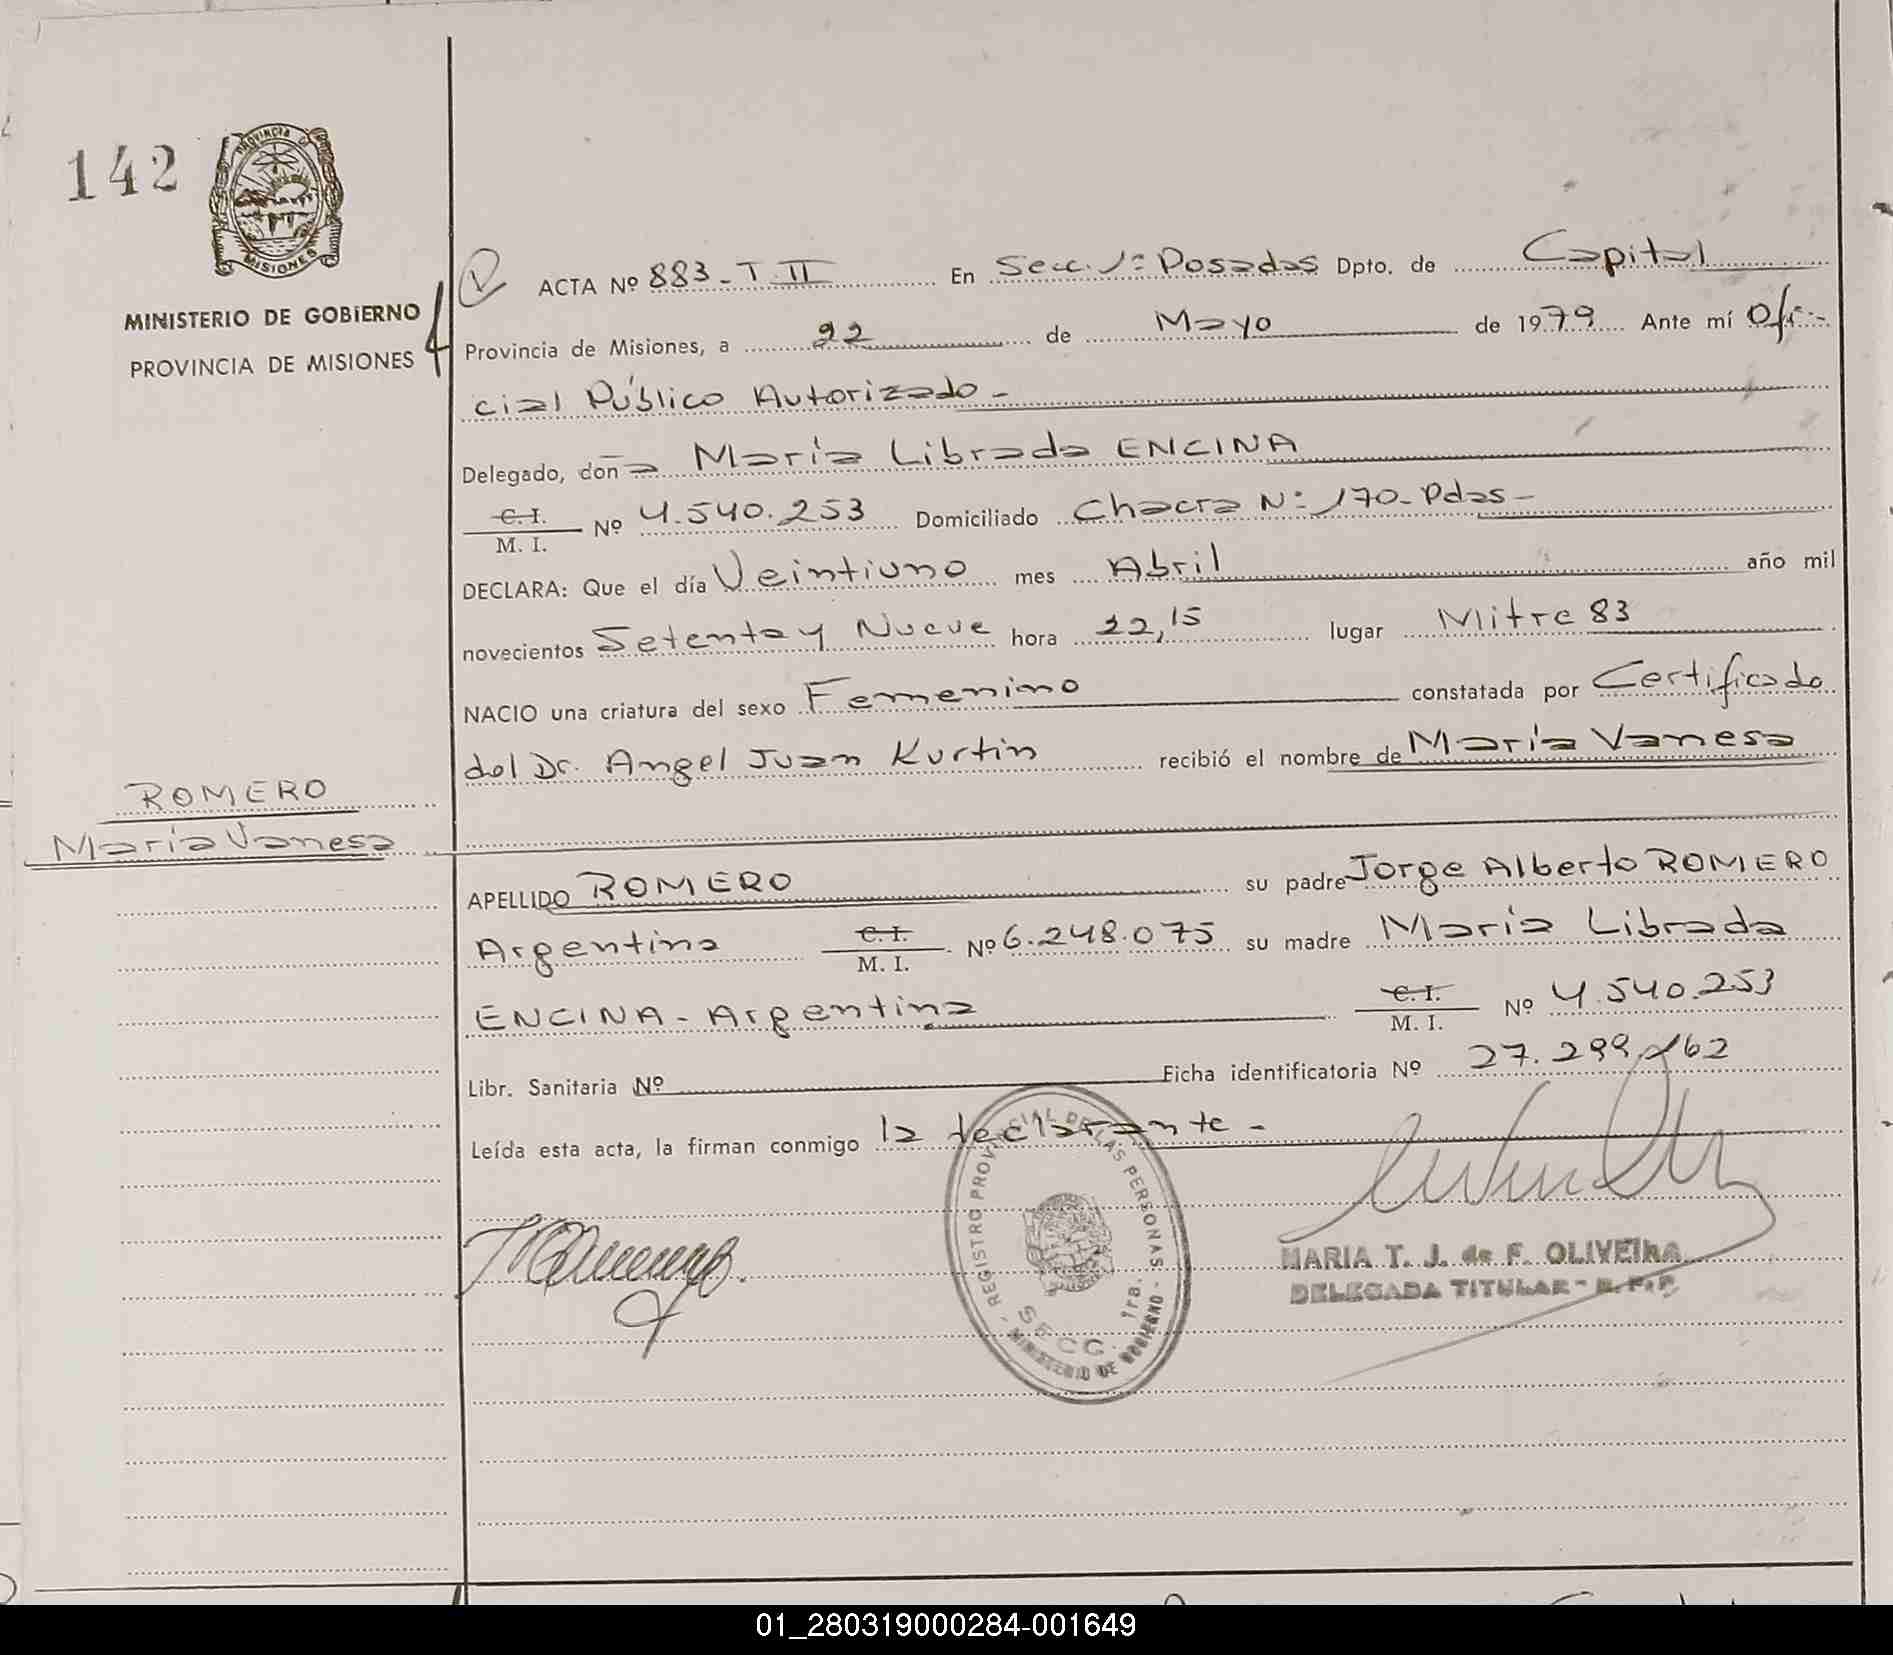 142
PROVINCIA DE
MISIONES
MINISTERIO DE GOBIERNO
PROVINCIA DE MISIONES
ACTA Nº 883 - T. II En Secc. 1ª Posadas Dpto. de Capital
Provincia de Misiones, a 22 de Mayo de 1979 Ante mí Ofi-
cial Público Autorizado -
Delegado, doña María Librada ENCINA
C. I. / M. I. Nº 4.540.253 Domiciliado Chacra Nº 170 - Pdas -
DECLARA: Que el día Veintiuno mes Abril año mil
novecientos Setenta y Nueve hora 22,15 lugar Mitre 83
NACIO una criatura del sexo Femenino constatada por Certificado
del Dr. Angel Juan Kurtin recibió el nombre de María Vanesa
ROMERO
María Vanesa
APELLIDO ROMERO su padre Jorge Alberto ROMERO
Argentino C. I. / M. I. Nº 6.248.075 su madre María Librada
ENCINA - Argentina C. I. / M. I. Nº 4.540.253
Libr. Sanitaria Nº Ficha identificatoria Nº 27.299.162
Leída esta acta, la firman conmigo la declarante -
REGISTRO PROVINCIAL DE LAS PERSONAS
SECC. 1ra.
MINISTERIO DE GOBIERNO
MARIA T. J. de F. OLIVEIRA
DELEGADA TITULAR - R. P. P.
01_280319000284-001649